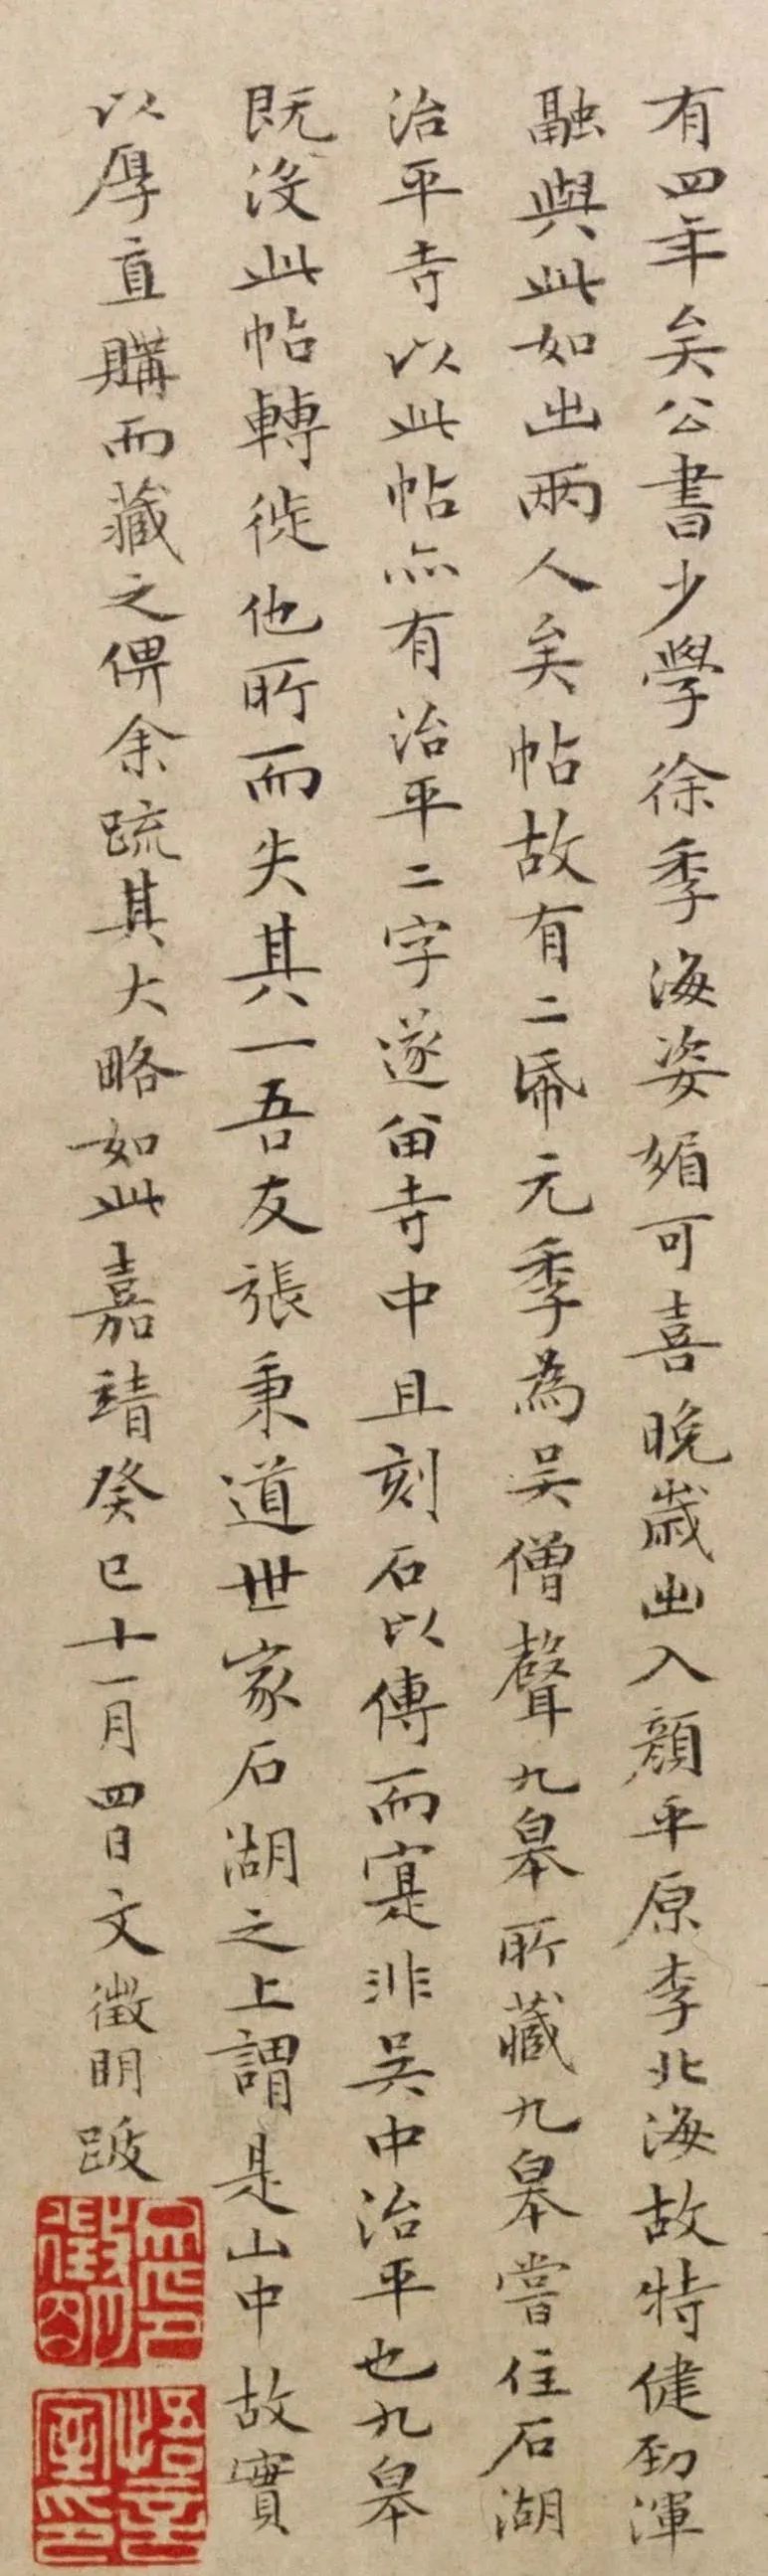 有四年矣公書少學徐季海姿媚可喜晚歲出入顏平原李北海故特健勁渾
融與此如出兩人矣帖故有二帋元季為吳僧聲九皋所藏九皋嘗住石湖
治平寺以此帖亦有治平二字遂留寺中且刻石以傳而寔非吳中治平也九皋
既沒此帖轉徙他所而失其一吾友張秉道世家石湖之上謂是山中故實
以厚直購而藏之俾余疏其大略如此嘉靖癸巳十一月四日文徵明跋
徵明印
悟言室印